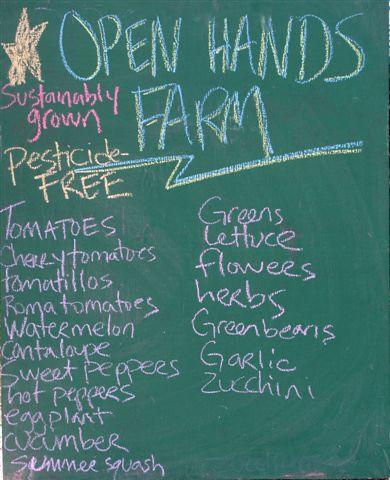 OPEN HANDS
FARM
Sustainably
grown
Pesticide-
FREE
TOMATOES
Cherrytomatoes
Tomatillos
Roma tomatoes
Watermelon
Cantaloupe
Sweet Peppers
hot peppers
eggplant
cucumber
summer squash
Greens
Lettuce
flowers
herbs
Greenbeans
Garlic
Zucchini